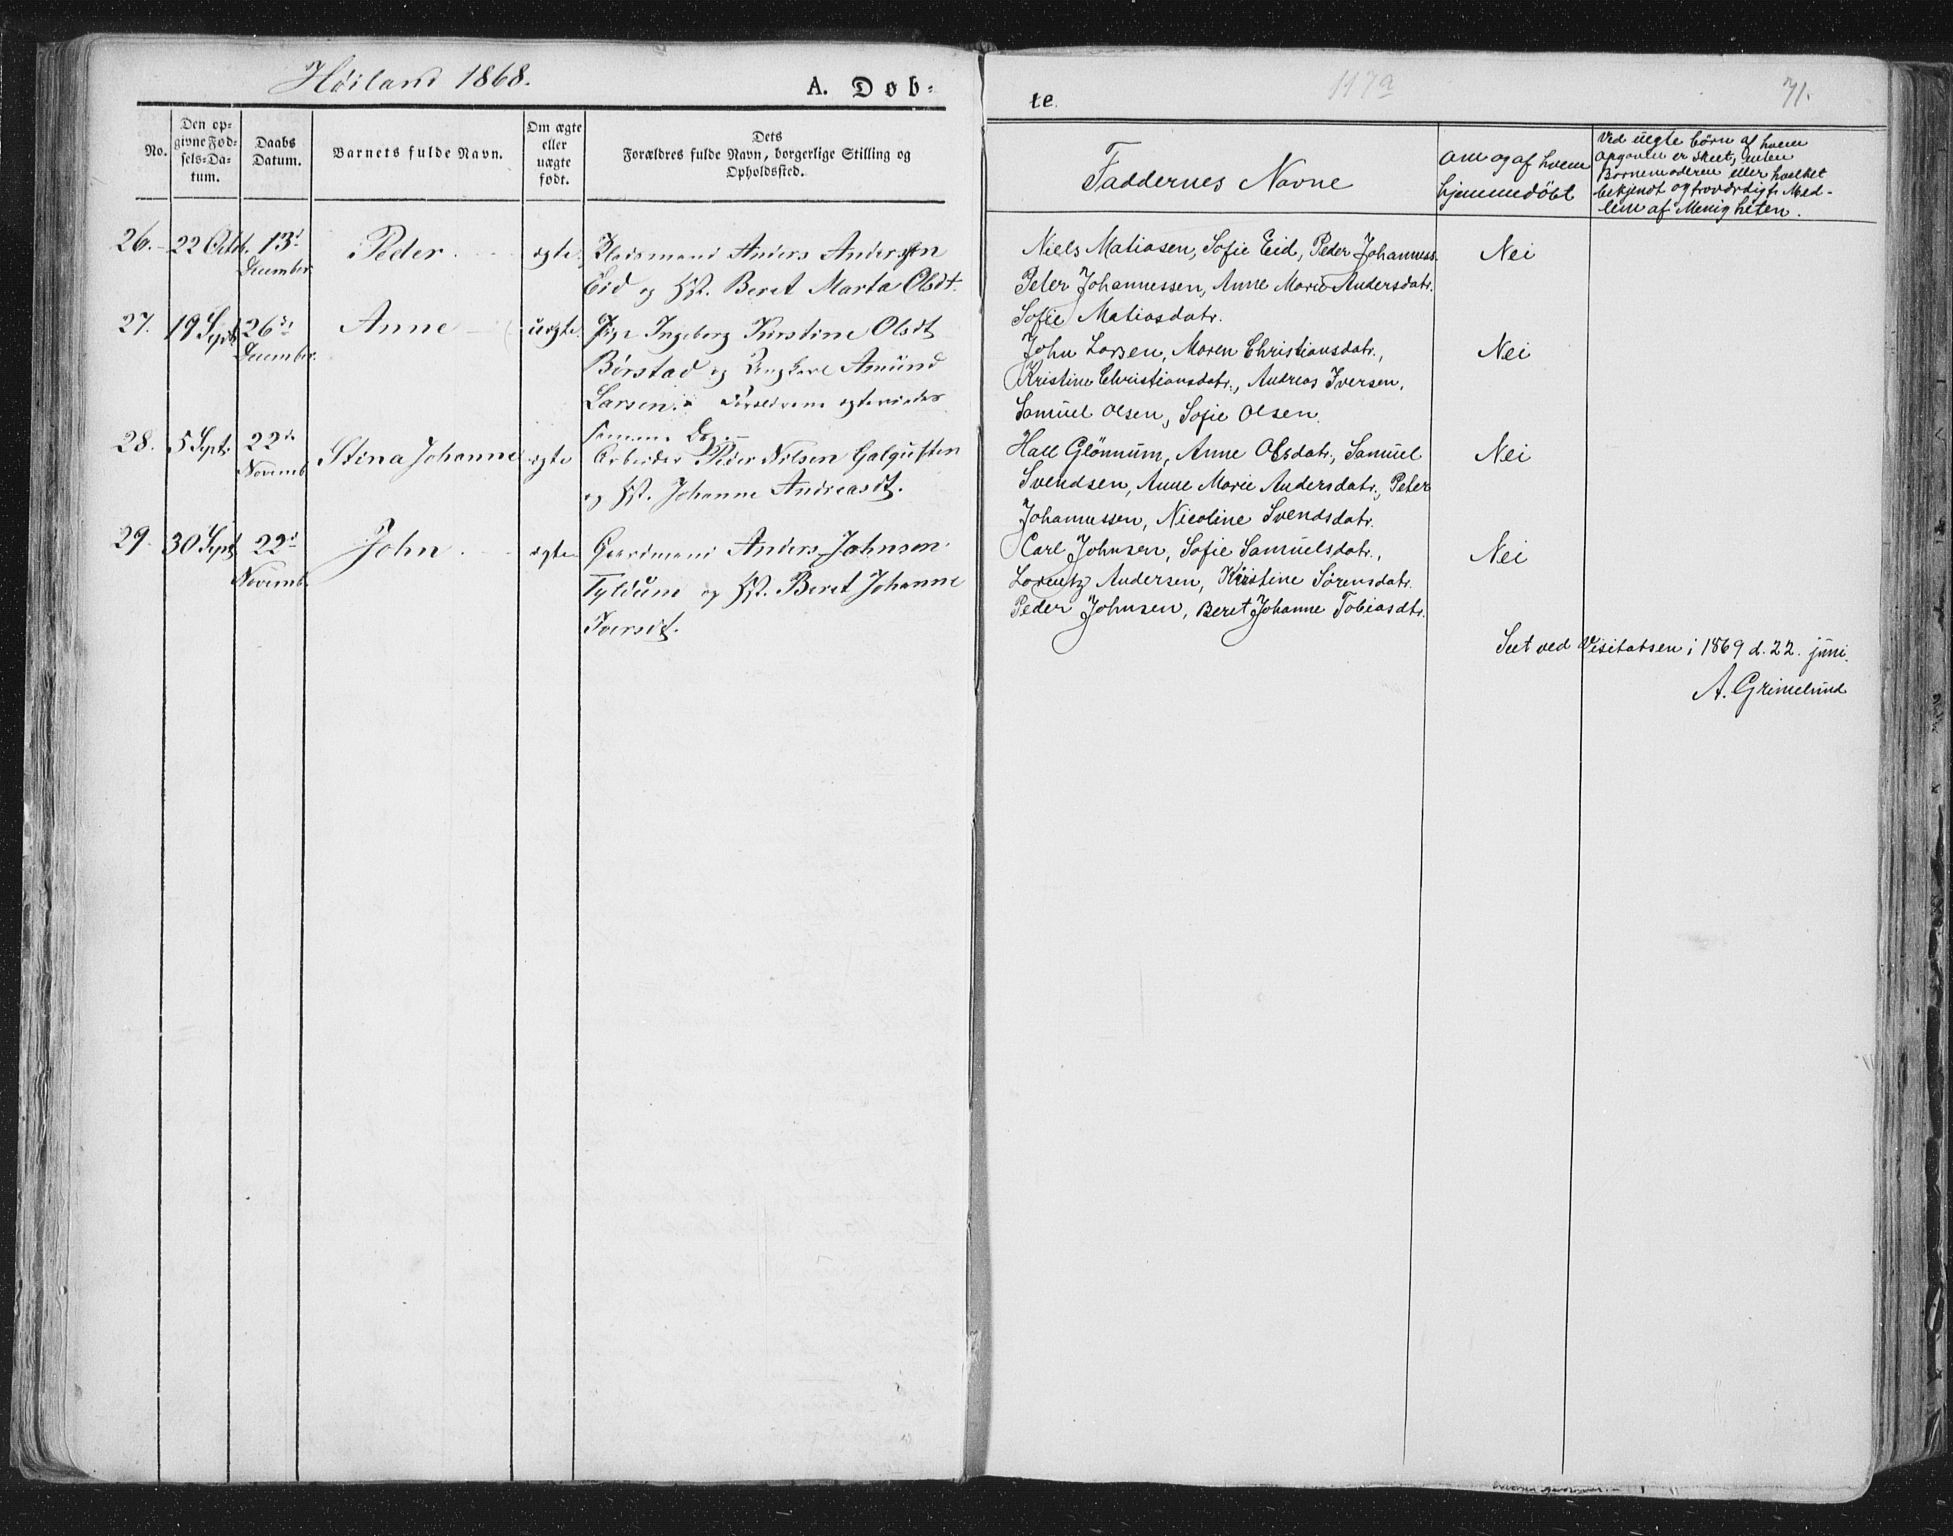 Høiland 1868.
A. Døb-
te.
117a
71.
No.
Den op-
givne Fød-
sels-Da-
tum.
Daabs
Datum.
Barnets fulde Navn.
Om ægte
eller
uægte
født.
Dets
Forældres fulde Navn, borgerlige Stilling og
Opholdssted.
Faddernes Navne
Om og af hvem
hjemmedöbt
Ved uegte börn af hvem
Opgaven er skeet, enten
Barnemoderen eller hvilket
bekjendt og troværdigt Med-
lem af Menigheten.
26. 22 Octb. 13d
December
Peder
ægte
Pladsmand Anders Andersen
Eid og Hst. Beret Marta Olsdt.
Niels Matiasen, Sofie Eid, Peder Johanness.
Peter Johannessen, Anne Marie Andersdatr.
Sofie Matiasdatr.
Nei
27. 19 Sept 26de
December
Anne
uægte
Pige Ingeborg Kirstine Olsdt
Børstad og Ungkarl Amund
Larsen. Forældrene ægteviedes
samme Dag.
John Larsen, Maren Christiansdatr.,
Kristine Christiansdatr., Andreas Iversen,
Samuel Olsen, Sofie Olsen.
Nei
28. 5 Sept. 22de
Novemb
Stina Johanne
ægte
Arbeider Peder Nilsen
og Hst. Johanne Andreasdt.
Hall Glömmum, Anne Olsdatr., Samuel
Svendsen, Anne Marie Andersdatr., Peter
Johannessen, Nicoline Svendsdatr.
Nei
29. 30 Sept 22d
Novemb.
John
ægte
Gaardmand Anders Johnson
Tyldum og Hst. Beret Johanne
Iversdt.
Carl Johnsen, Sofie Samuelsdatr.,
Lorentz Andersen, Kristine Sörensdatr.
Peder Johnsen, Beret Johanne Tobiasdtr.
Nei
Seet ved Visitatsen i 1869 d. 22. juni.
A. Grimelund